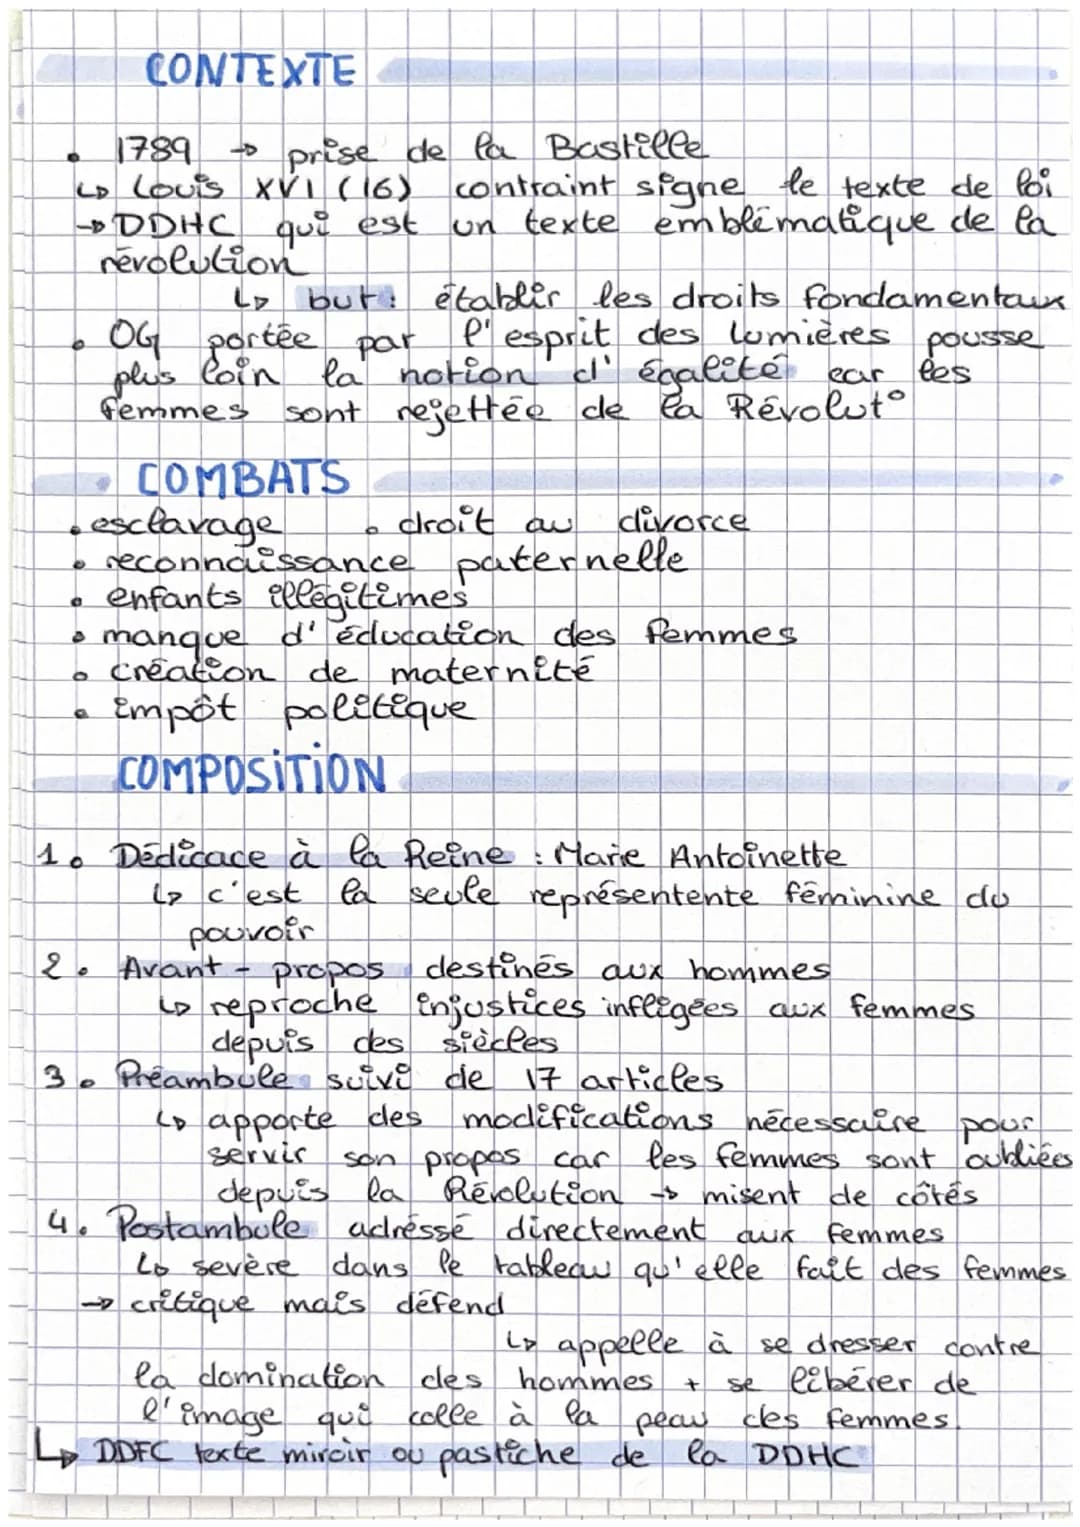 CONTEXTE
• 1789 → prise de la Bastille
↳ Louis XVI (16) contraint signe le texte de loi
→ DDHC qui est un texte emblématique de la
révolution
↳ but : établir les droits fondamentaux
• OG portée par l'esprit des lumières pousse
plus loin la notion d'égalité car les
femmes sont rejettée de la Révolut°
COMBATS
• esclavage • droit au divorce
• reconnaissance paternelle
• enfants illégitimes
• manque d'éducation des femmes
• création de maternité
• impôt politique
COMPOSITION
1. Dédicace à la Reine : Marie Antoinette
↳ c'est la seule représentente féminine du
pouvoir
2. Avant-propos destinés aux hommes
↳ reproche injustices infligées aux femmes
depuis des siècles
3. Préambule suivi de 17 articles
↳ apporte des modifications nécessaire pour
servir son propos car les femmes sont oubliées
depuis la Révolution → misent de côtés
4. Postambule adréssé directement aux femmes
↳ sevère dans le tableau qu'elle fait des femmes
→ critique mais défend
↳ appelle à se dresser contre
la domination des hommes + se libérer de
l'image qui colle à la peau des femmes.
↳ DDFC texte miroir ou pastiche de la DDHC